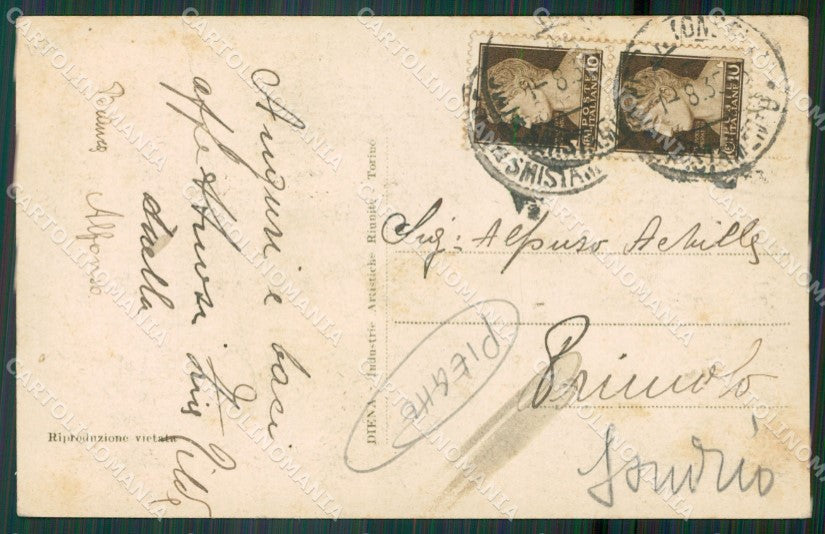 Auguri e baci
affettuosi
Stella
Alfonso
Riproduzione vietata
DIENA Industrie Artistiche Riunite Torino
POSTE
ITALIANE
10
POSTE
ITALIANE
10
Sig: Alfonso Achille
Primolo
PIEGHE
Sondrio
CARTOLINOMANIA